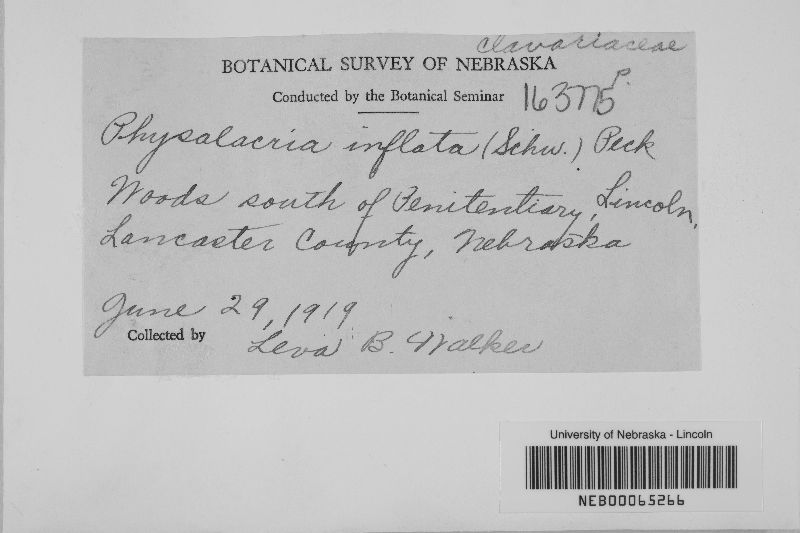 Clavariaceae
BOTANICAL SURVEY OF NEBRASKA
Conducted by the Botanical Seminar
163775 P.
Physalacria inflata (Schw.) Peck
Woods south of Penitentiary, Lincoln,
Lancaster County, Nebraska
June 29, 1919
Collected by Leva B. Walker
University of Nebraska - Lincoln
NEB00065266